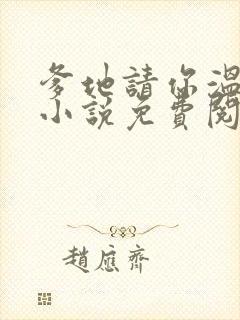 爹地請你溫
小說免費閱
趙應齊